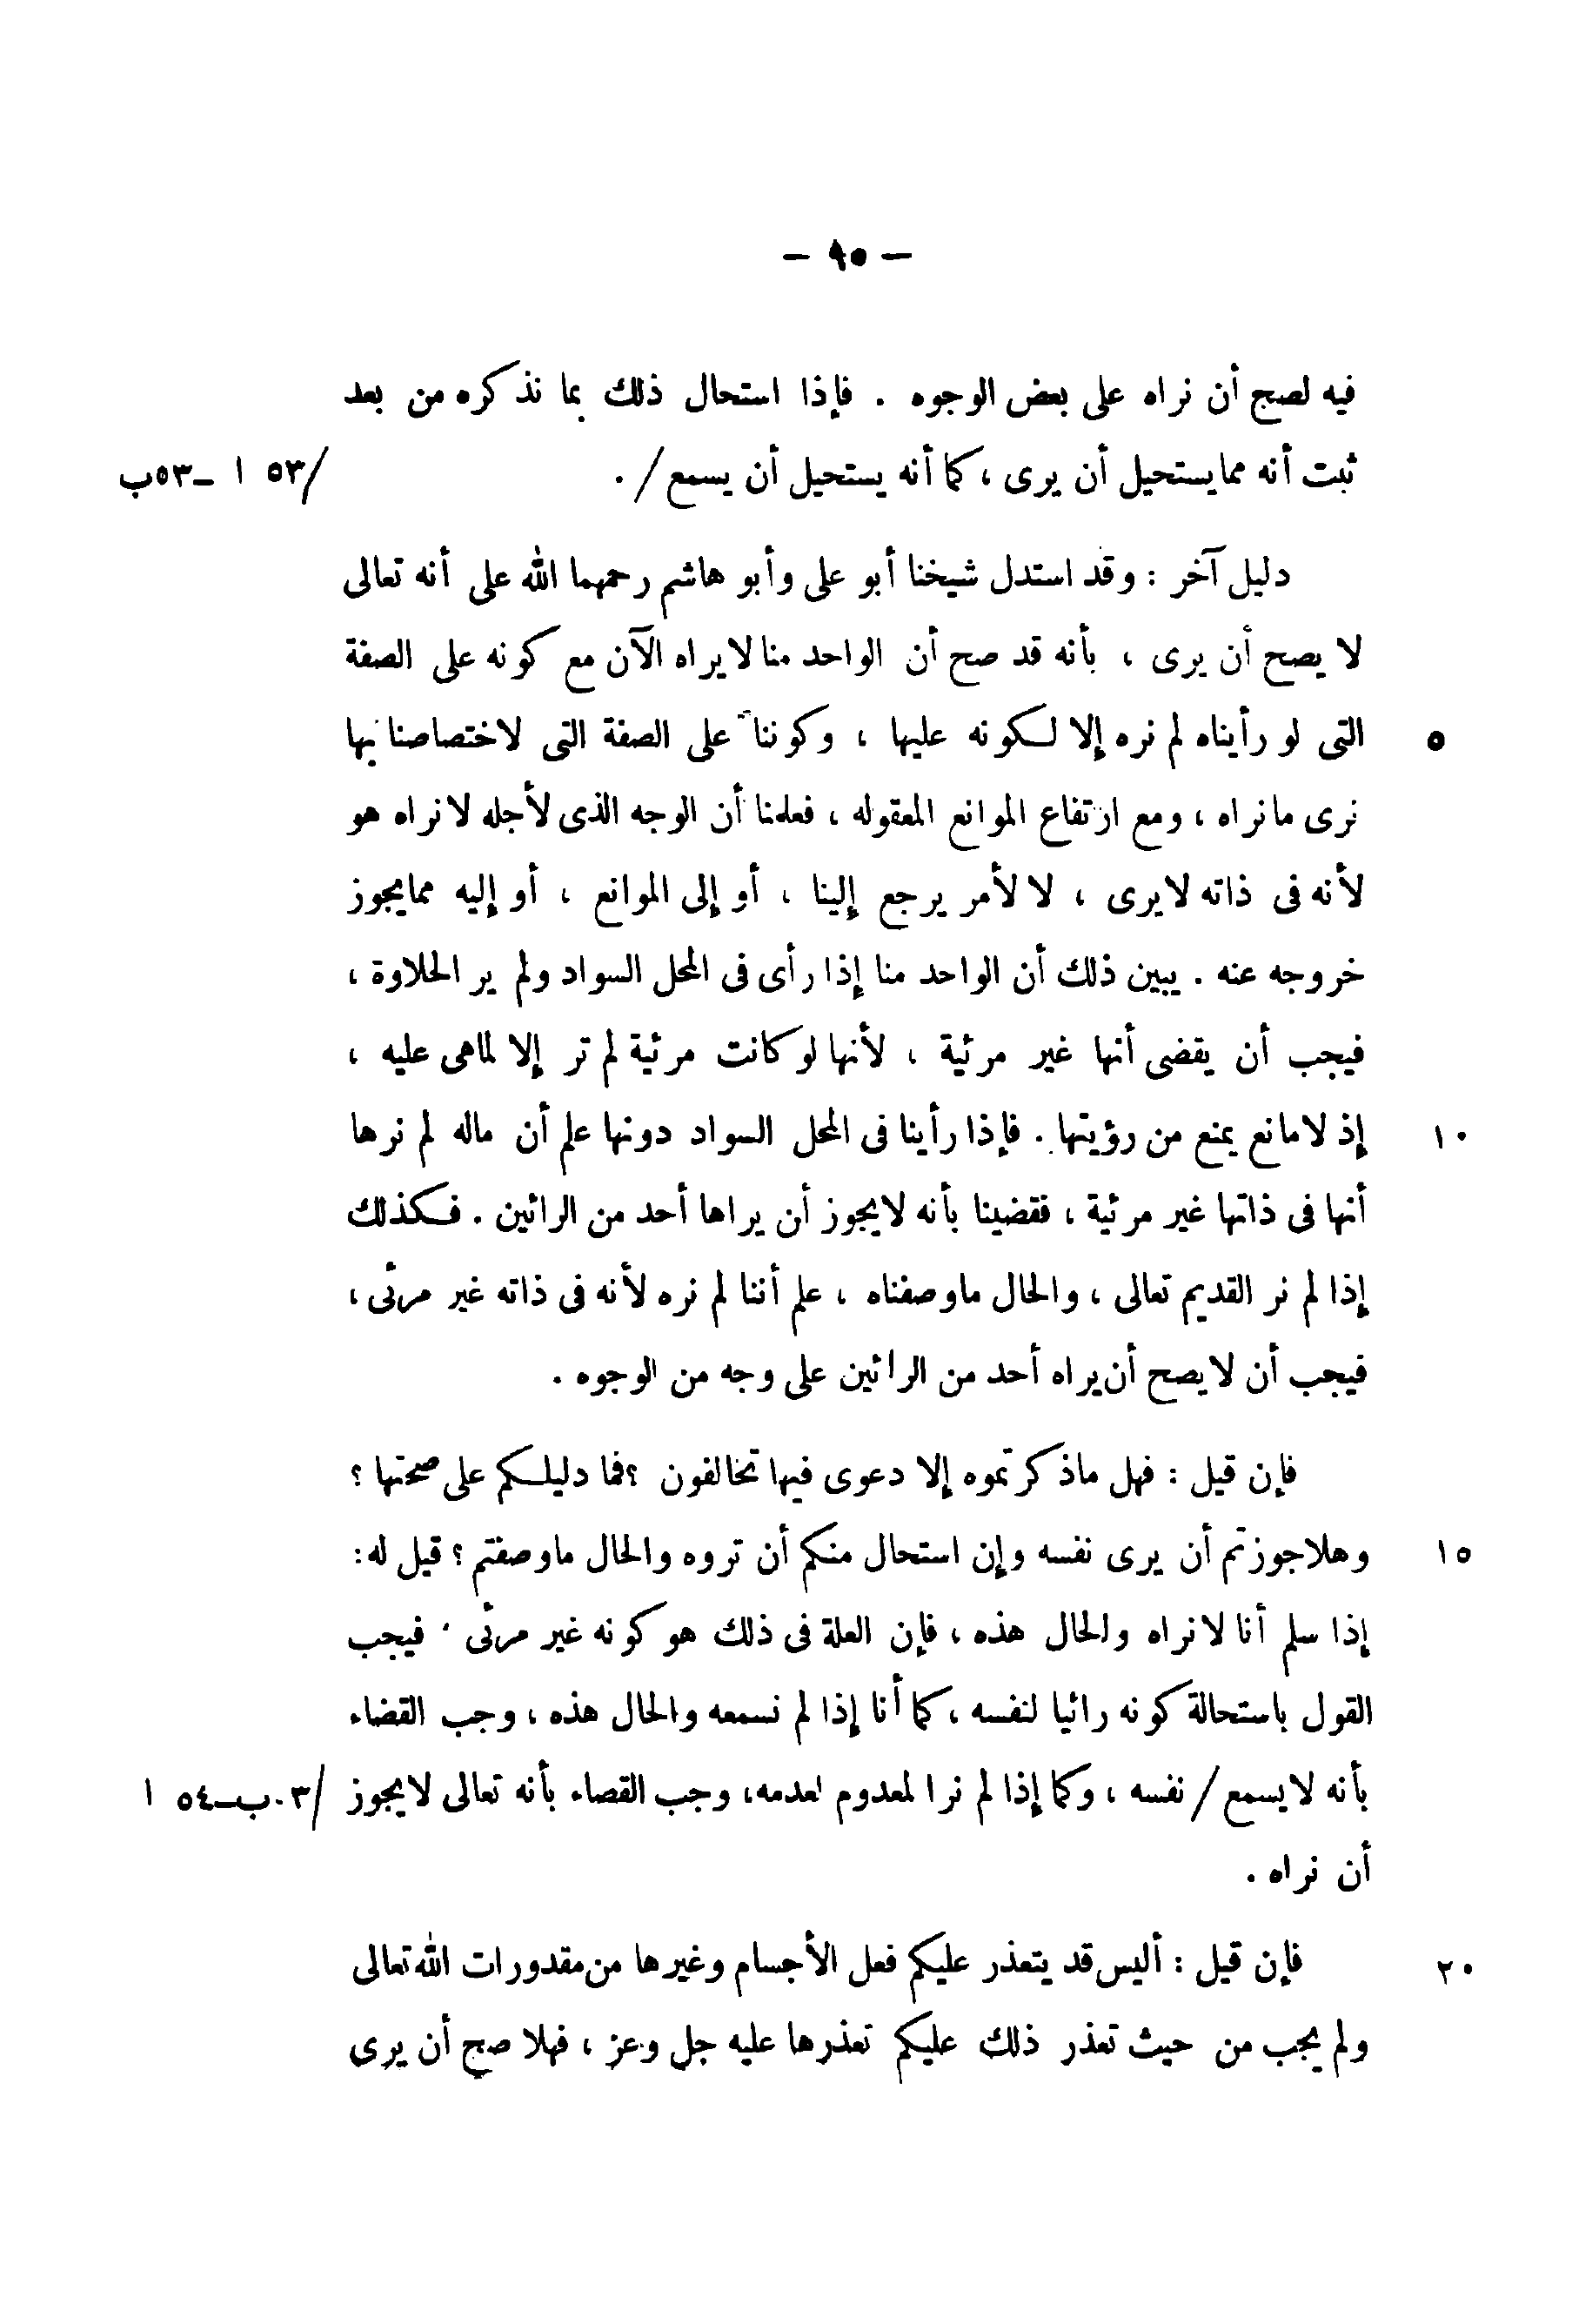 — ٩٥ —
فيه لصح أن نراه على بعض الوجوه . فإذا استحال ذلك بما نذكره من بعد
ثبت أنه مما يستحيل أن يرى ، كما أنه يستحيل أن يسمع / . /٥٣ ا ـ ٥٣ب
دليل آخر : وقد استدل شيخنا أبو على وأبو هاشم رحمهما الله على أنه تعالى
لا يصح أن يرى ، بأنه قد صح أن الواحد منا لا يراه الآن مع كونه على الصفة
٥ التى لو رأيناه لم نره إلا لكونه عليها ، وكوننا على الصفة التى لاختصاصنا بها
نرى ما نراه ، ومع ارتفاع الموانع المعقوله ، فعلمنا أن الوجه الذى لأجله لا نراه هو
لأنه فى ذاته لا يرى ، لا لأمر يرجع إلينا ، أو إلى الموانع ، أو إليه مما يجوز
خروجه عنه . يبين ذلك أن الواحد منا إذا رأى فى المحل السواد ولم ير الحلاوة ،
فيجب أن يقضى أنها غير مرئية ، لأنها لو كانت مرئية لم تر إلا لما هى عليه ،
١٠ إذ لا مانع يمنع من رؤيتها . فإذا رأينا فى المحل السواد دونها علم أن ماله لم نرها
أنها فى ذاتها غير مرئية ، فقضينا بأنه لا يجوز أن يراها أحد من الرائين . فكذلك
إذا لم نر القديم تعالى ، والحال ما وصفناه ، علم أننا لم نره لأنه فى ذاته غير مرئى ،
فيجب أن لا يصح أن يراه أحد من الرائين على وجه من الوجوه .
فإن قيل : فهل ما ذكرتموه إلا دعوى فيها تخالفون ؟ فما دليلكم على صحتها ؟
١٥ وهلا جوزتم أن يرى نفسه وإن استحال منكم أن تروه والحال ما وصفتم ؟ قيل له :
إذا سلم أنا لا نراه والحال هذه ، فإن العلة فى ذلك هو كونه غير مرئى ، فيجب
القول باستحالة كونه رائيا لنفسه ، كما أنا إذا لم نسمعه والحال هذه ، وجب القضاء
بأنه لا يسمع / نفسه ، وكما إذا لم نر المعدوم لعدمه ، وجب القصاء بأنه تعالى لا يجوز /٠٣ب ـ ٥٤ ا
أن نراه .
٢٠ فإن قيل : أليس قد يتعذر عليكم فعل الأجسام وغيرها من مقدورات الله تعالى
ولم يجب من حيث تعذر ذلك عليكم تعذرها عليه جل وعز ، فهلا صح أن يرى